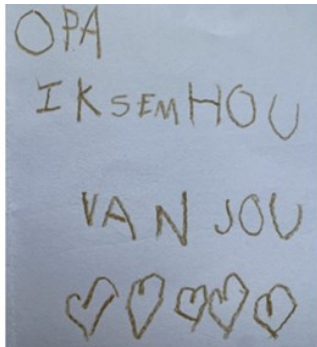 OPA
IK SEM HOU
VAN JOU